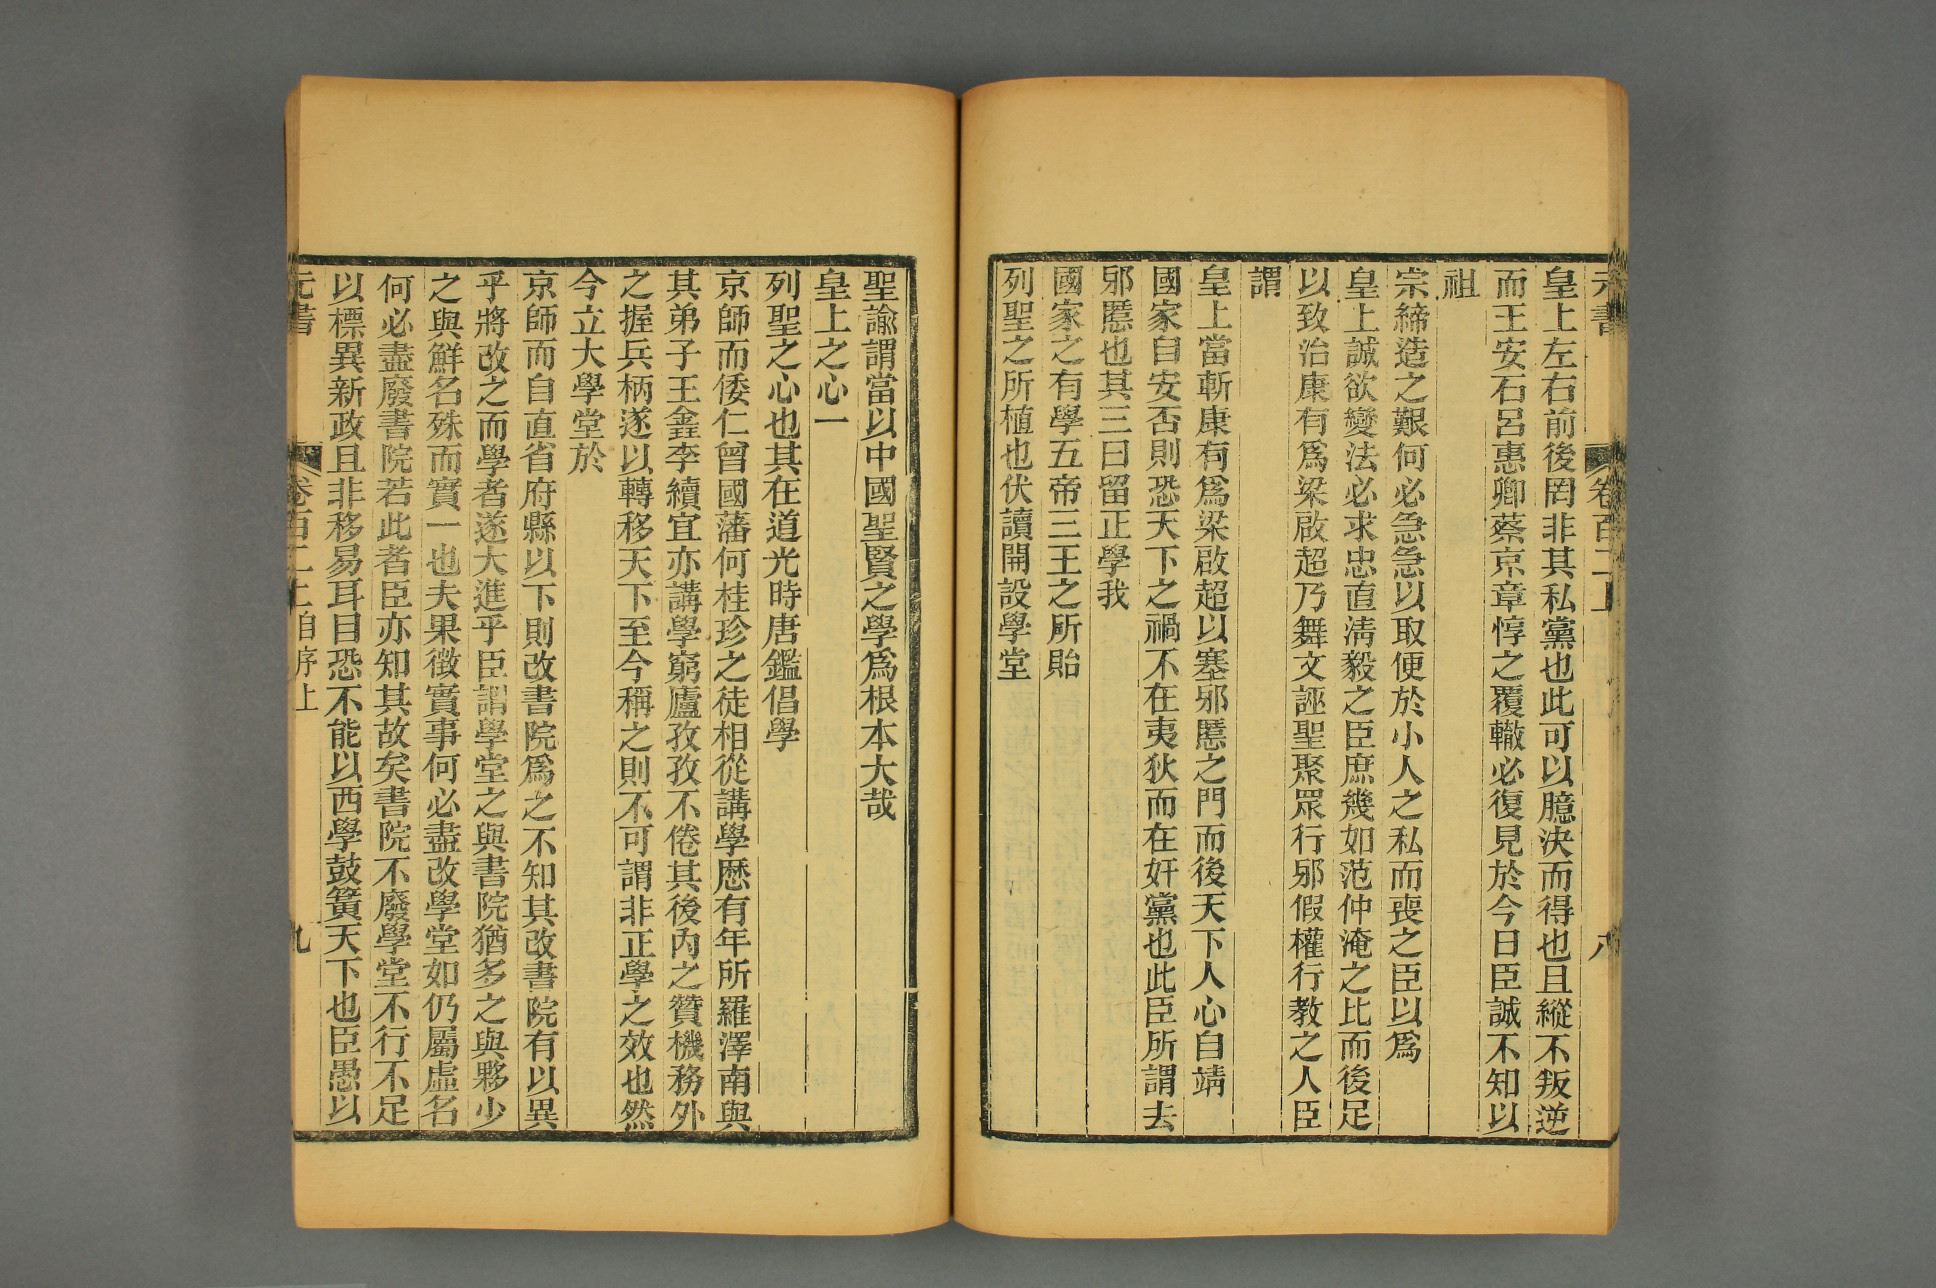 元書 卷百二上 八
皇上左右前後罔非其私黨也此可以臆決而得也且縱不叛逆
而王安石呂惠卿蔡京章惇之覆轍必復見於今日臣誠不知以
祖
宗締造之艱何必急急以取便於小人之私而喪之臣以爲
皇上誠欲變法必求忠直清毅之臣庶幾如范仲淹之比而後足
以致治康有爲梁啟超乃舞文誣聖聚眾行邪假權行教之人臣
謂
皇上當斬康有爲梁啟超以塞邪慝之門而後天下人心自靖
國家自安否則恐天下之禍不在夷狄而在奸黨也此臣所謂去
邪慝也其三曰留正學我
國家之有學五帝三王之所貽
列聖之所植也伏讀開設學堂
聖諭謂當以中國聖賢之學爲根本大哉
皇上之心一
列聖之心也其在道光時唐鑑倡學
京師而倭仁曾國藩何桂珍之徒相從講學歷有年所羅澤南與
其弟子王鑫李續宜亦講學窮廬孜孜不倦其後內之贊機務外
之握兵柄遂以轉移天下至今稱之則不可謂非正學之效也然
今立大學堂於
京師而自直省府縣以下則改書院爲之不知其改書院有以異
乎將改之而學者遂大進乎臣謂學堂之與書院猶多之與夥少
之與鮮名殊而實一也夫果徵實事何必盡改學堂如仍屬虛名
何必盡廢書院若此者臣亦知其故矣書院不廢學堂不行不足
以標異新政且非移易耳目恐不能以西學鼓簧天下也臣愚以
元書 卷百二上自序上 九